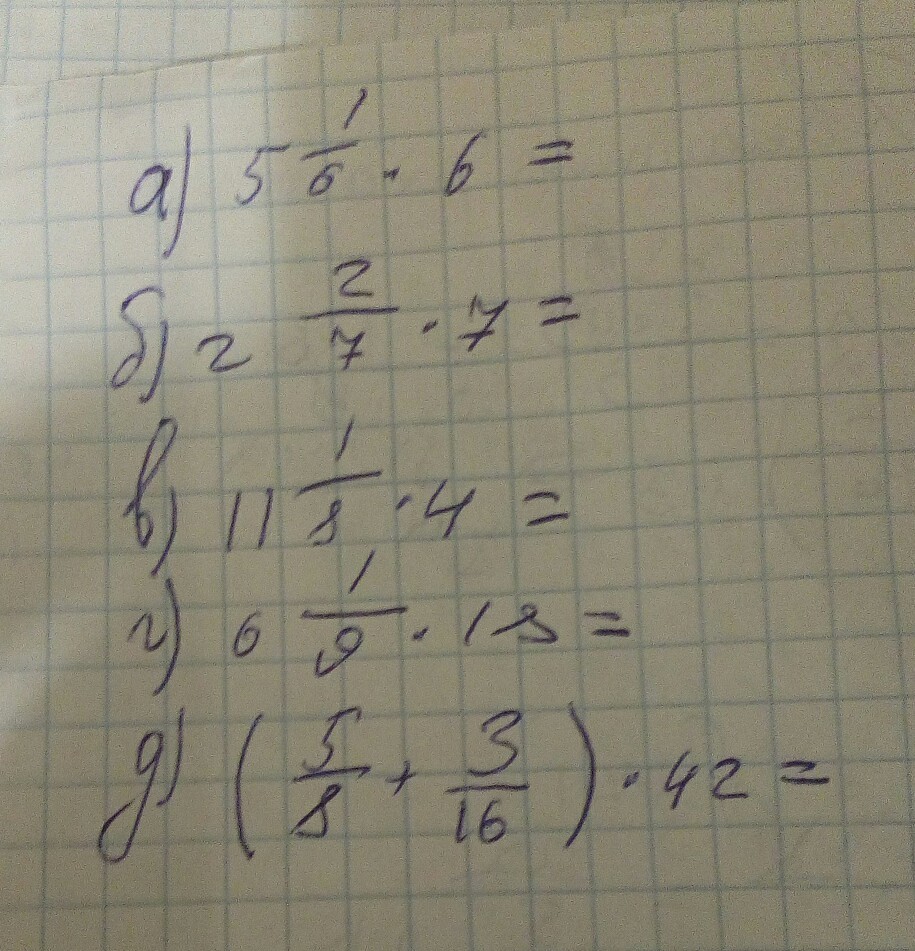 а) 5 1/6 · 6 =
б) 2 2/7 · 7 =
в) 11 1/8 · 4 =
г) 6 1/9 · 18 =
д) (5/8 + 3/16) · 42 =